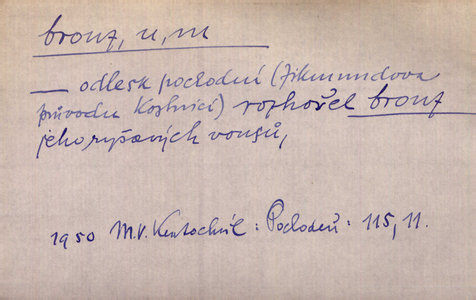 bronz, u, m
— odlesk pochodní (Zikmundova
průvodu Kostnicí) rozhořel bronz
jeho ryšavých vousů,
1950 M.V. Kratochvíl: Pochodeň: 115, 11.